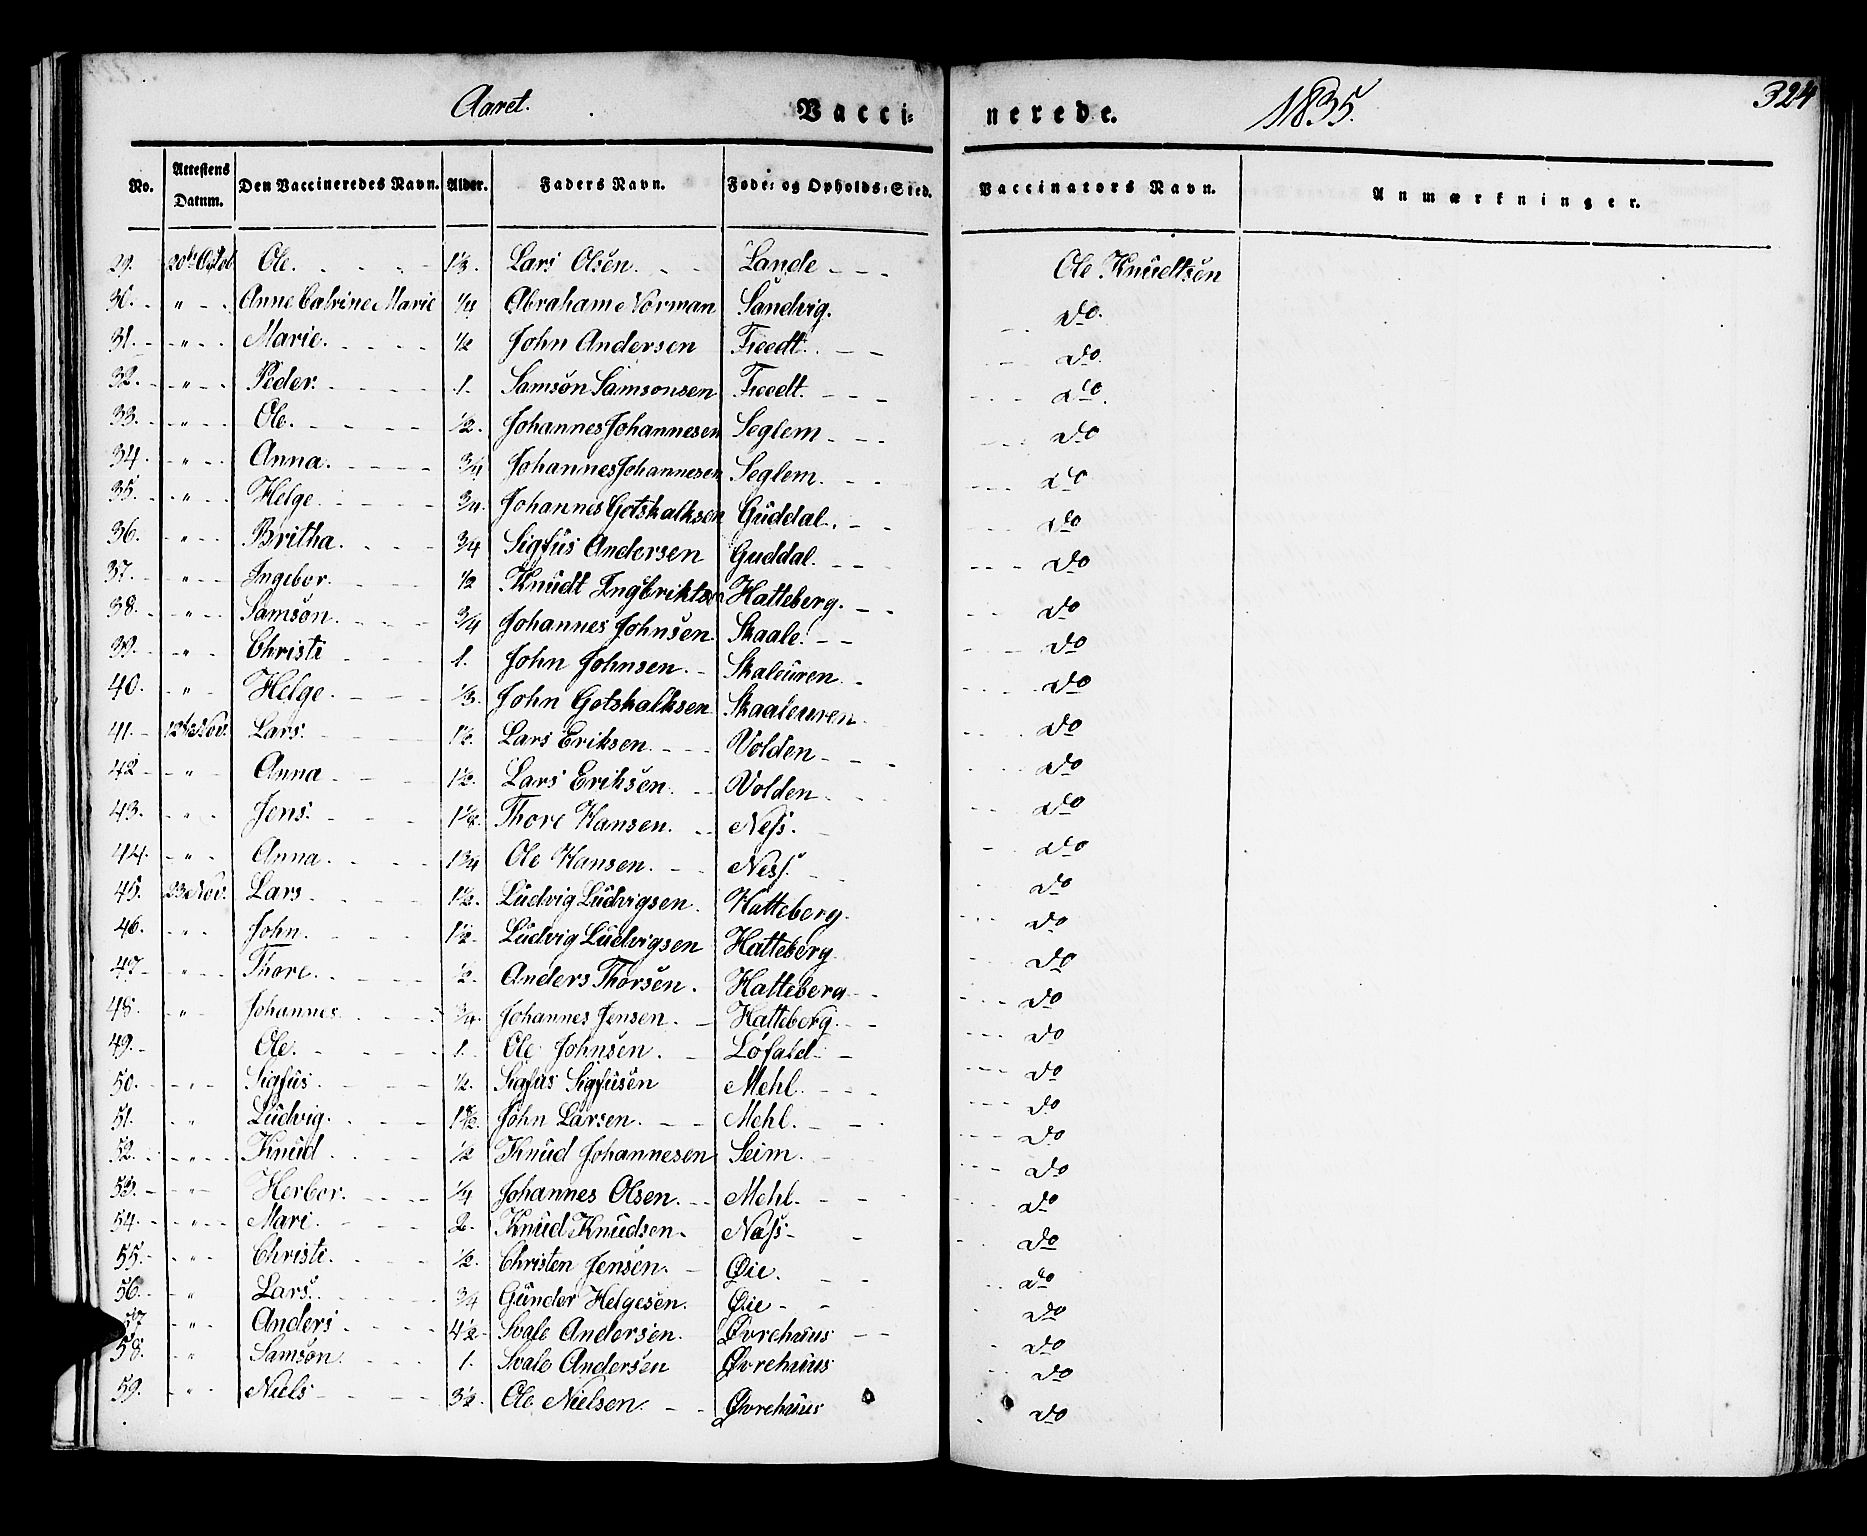 Aaret. Vacci- nerede. 1835. 324
No. Attestens Datum. Den Vaccineredes Navn. Alder. Faders Navn. Føde- og Opholds-Sted. Vaccinators Navn. Anmærkninger.
29. 20de Octob Ole. Lars Olsen. Lande Ole Knudtsen
30. " Anne Catrine Marie 1/4 Abraham Norman Sandvig. do.
31. " Marie. 1/2 John Andersen do
32. " Peder. 1. Samson Samsonsen do.
33. " Ole. 1/2. Johannes Johannesen Seglem. do
34. " Anna. 3/4 Johannes Johannesen Seglem. do
35. " Helge 3/4. Johannes Gotskalksen Guddal. do
36. " Britha. 3/4 Sigfus Andersen Guddal. do
37. " Ingebor. 1/2 Knudt Ingbriktsen Hatteberg. do
38. " Samson. 3/4 Johannes Johnsen Skaale. do
39. " Christi 1. John Johnsen. Skaleuren do
40. " Helge. 1/3. John Gotskalksen Skaaleuren do
41. 12te Nov. Lars. 1½. Lars Eriksen. Volden do
42 " Anna 1½. Lars Eriksen. Volden do
43. " Jens. Thore Hansen. Ness. do
44. " Anna 1¾ Ole Hansen. Ness. do
45. 23 Nov. Lars 1½. Ludvig Ludvigsen. Hatteberg. do
46. " John. 1½. Ludvig Ludvigsen Hatteberg do
47 " Thore. 1/2. Anders Thorsen. Hatteberg do
48. " Johannes 3/4. Johannes Jensen. Hatteberg. do
49. Ole. 1. Ole Johnsen. Løfald do
50. " Sigfus 1/2. Sigfus Sigfusen Mehl. do
51. " Ludvig. John Larsen. Mehl. do
52. " Knud 1/2 Knud Johannesen Seim. do
53. " Herbor. 1/4 Johannes Olsen. Mehl. do
54. " Mari. 2. Knud Knudsen Næss do
55. " Christi. 1/2. Christen Jensen. Øie. do
56. " Lars. 3/4 Gunder Helgesen. Øie do
57 " Anders 4½ Svale Andersen. Øvrehuus do
58. " Samson. 1. Svale Andersen Øvrehuus do
59. " Niels 3½. Ole Nielsen. Øvrehuus do